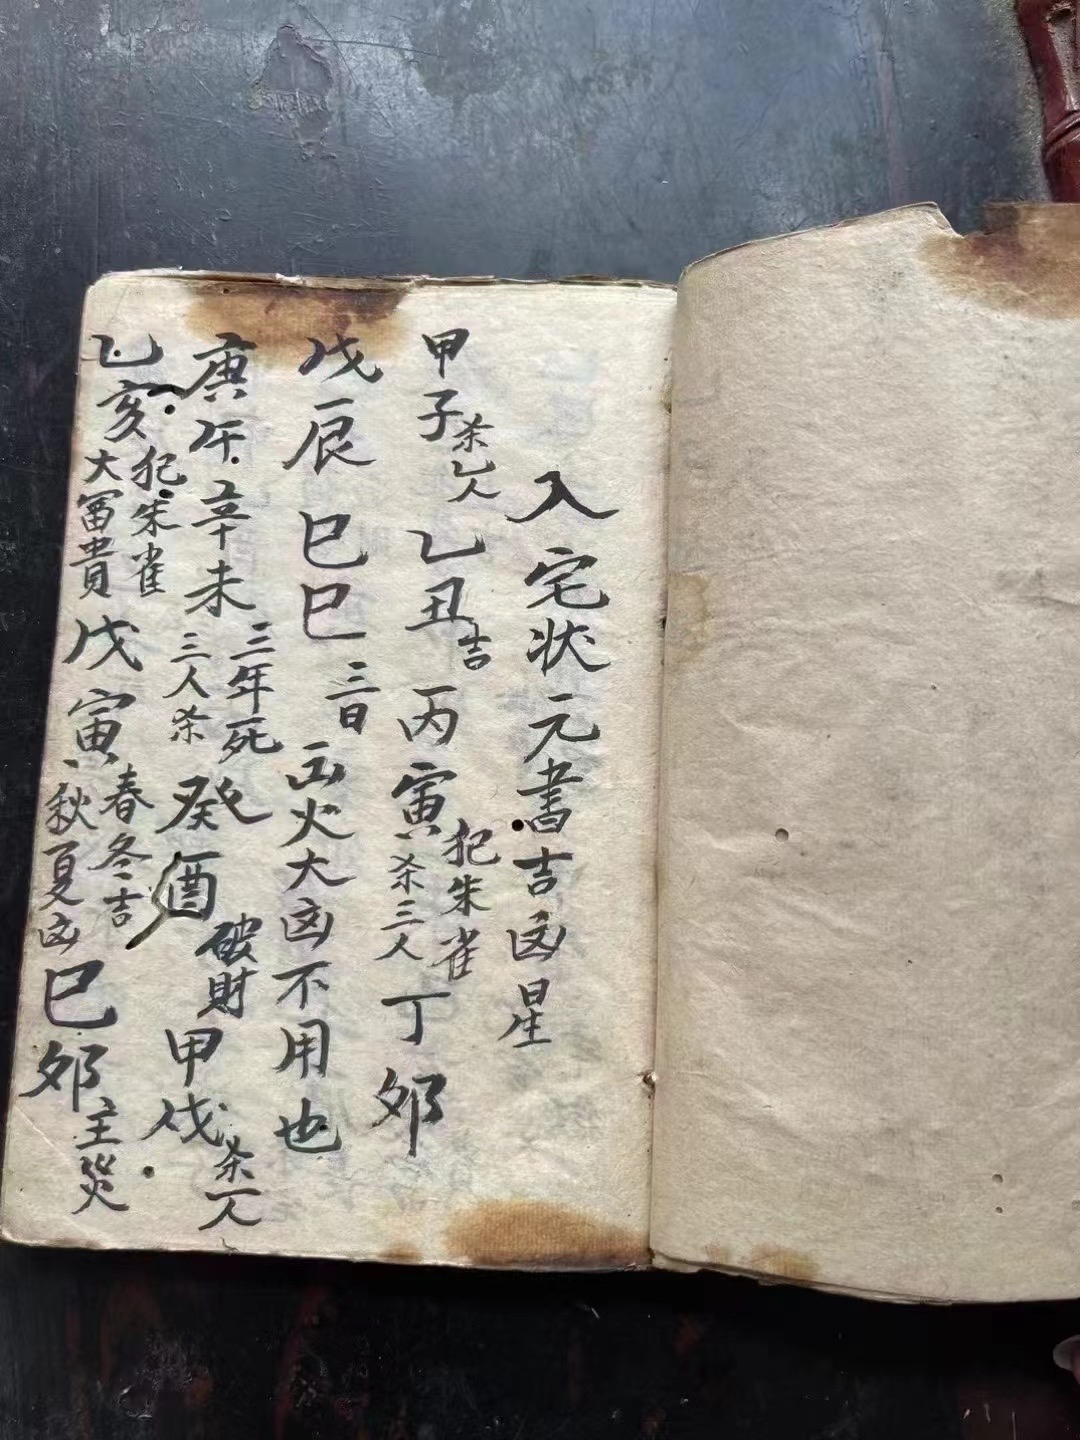 入宅状元書吉凶星
甲子杀乙人乙丑吉丙寅犯朱雀杀三人丁卯
戊辰巳巳三日凶火大凶不用也
庚午辛未三年死三人杀癸酉破財甲戌杀一人
乙亥犯朱雀大冨貴戊寅春冬吉秋夏凶巳卯主災